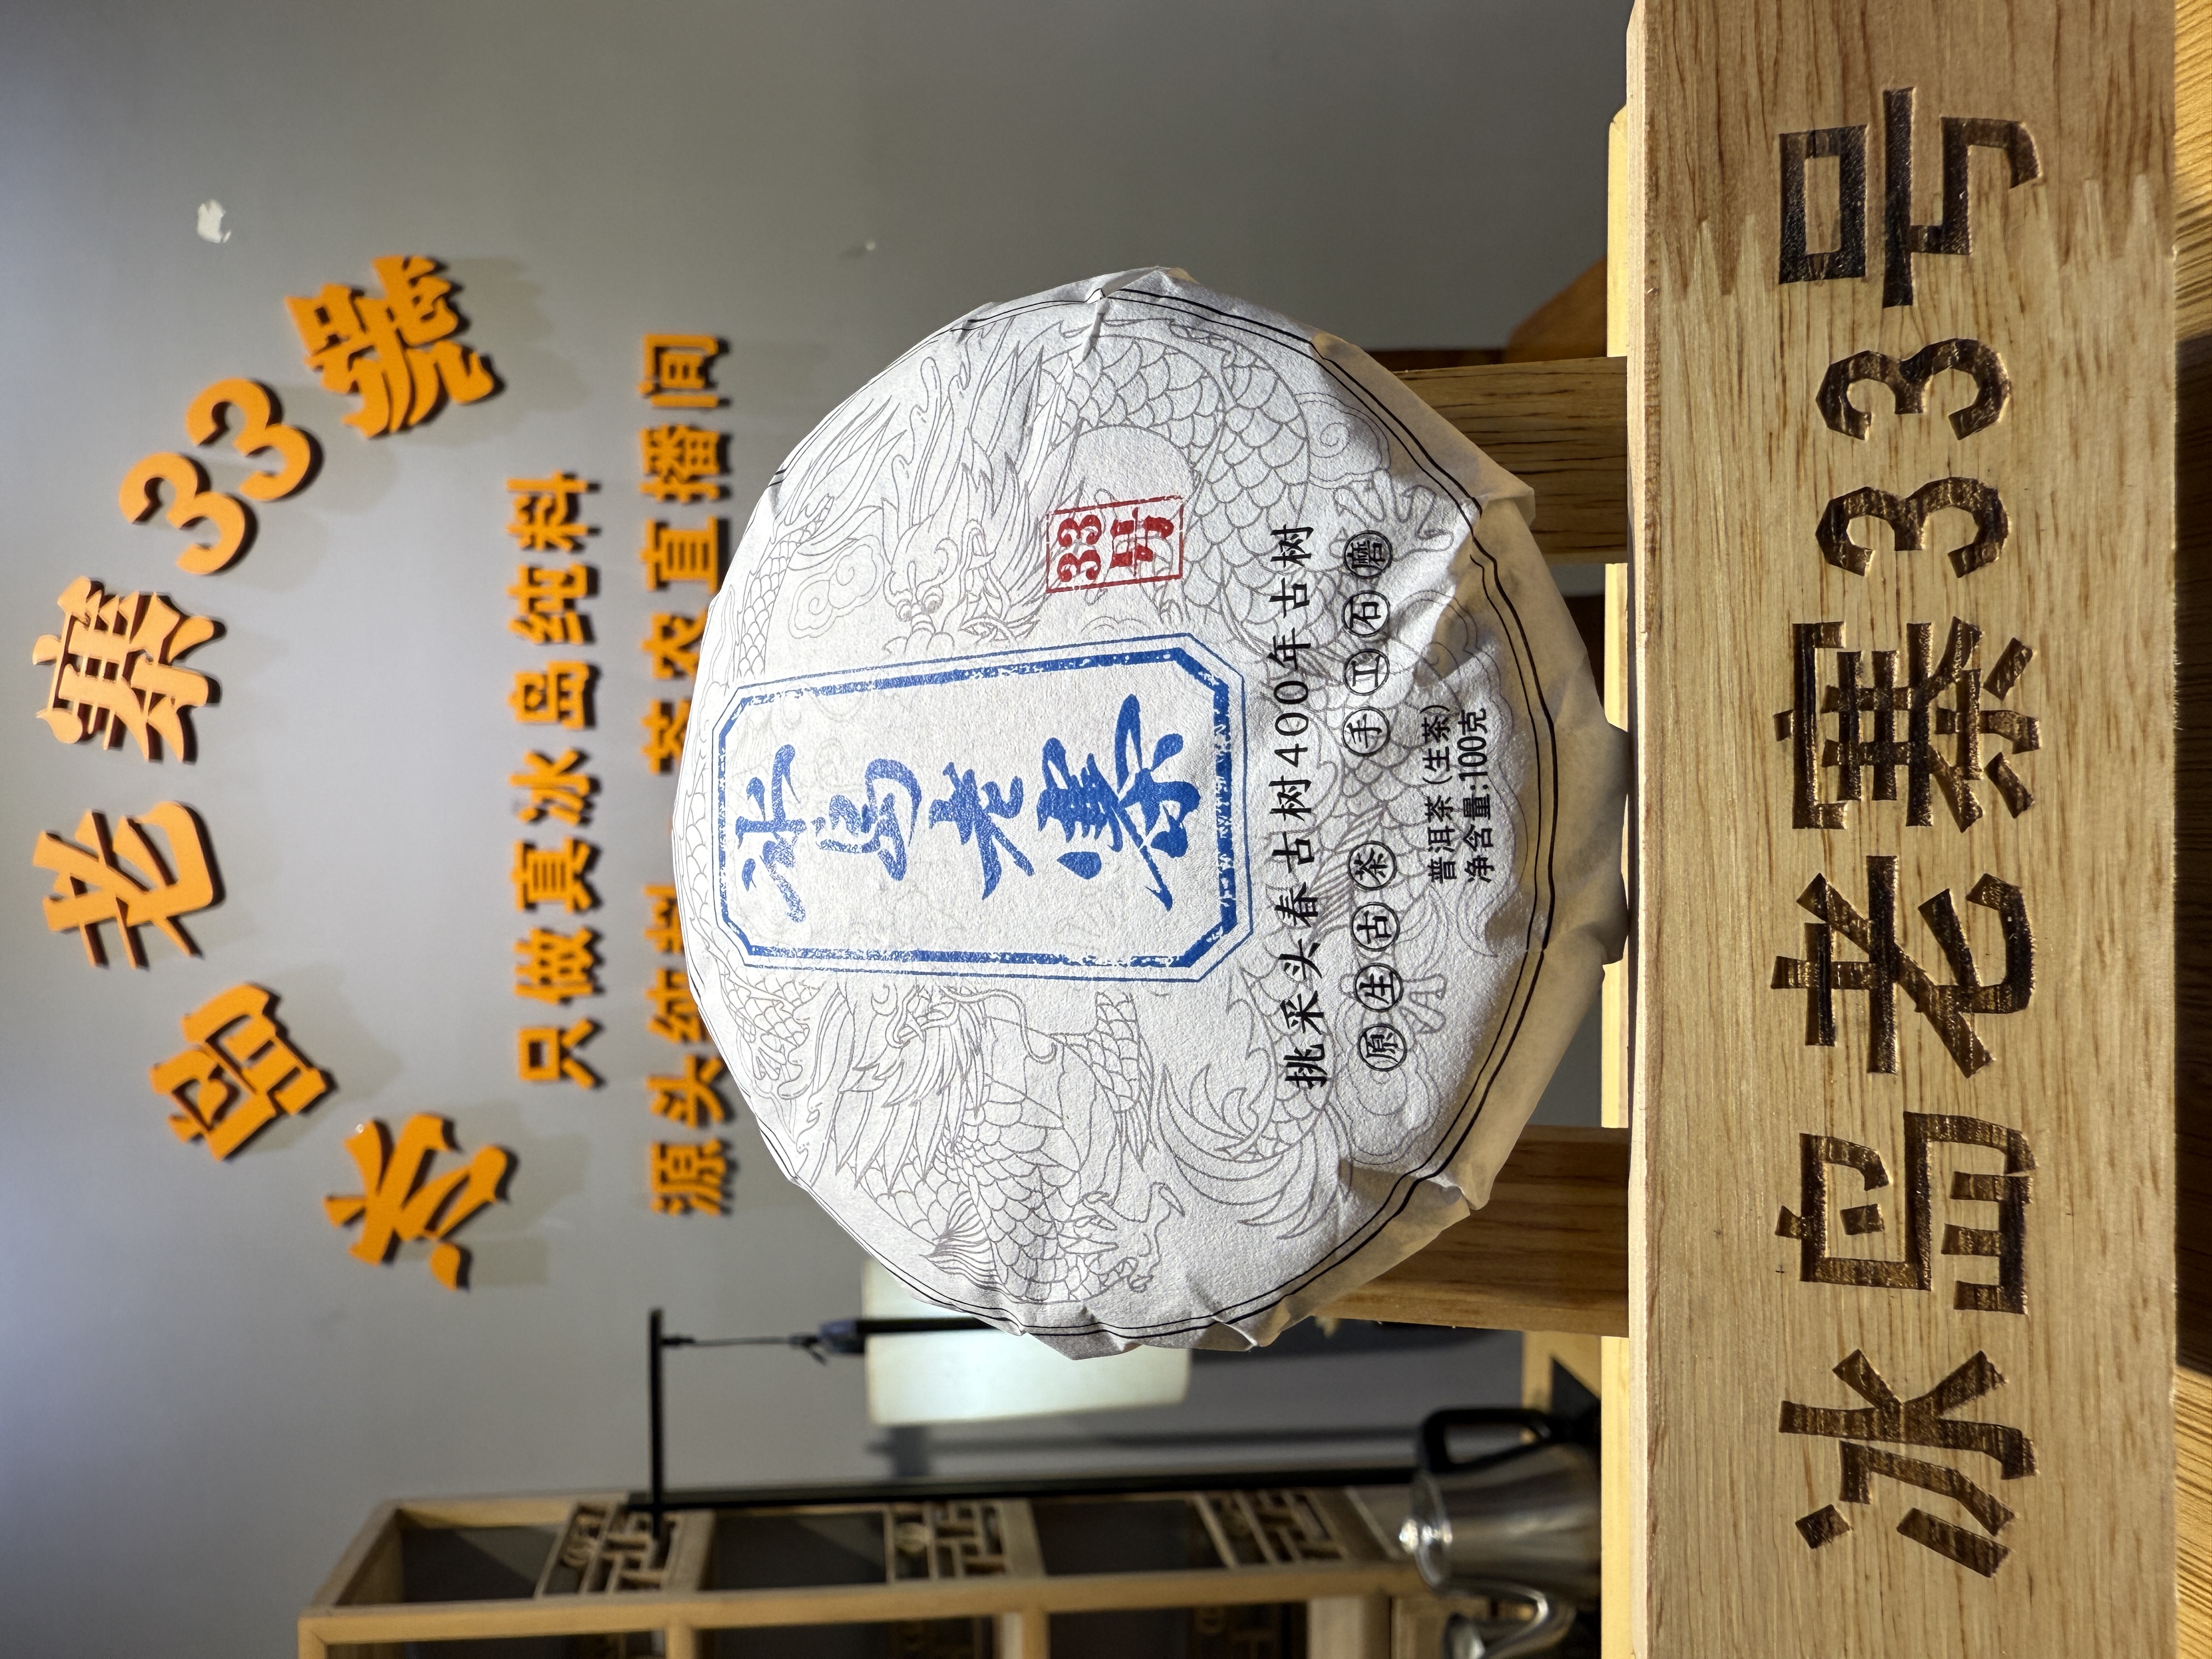 冰岛老寨33號
只做真冰岛纯料
源头纯料 茶农直播间
冰
岛
老
寨
33
号
挑采头春古树400年古树
原生古茶 手工石磨
普洱茶(生茶)
净含量:100克
冰岛老寨33号